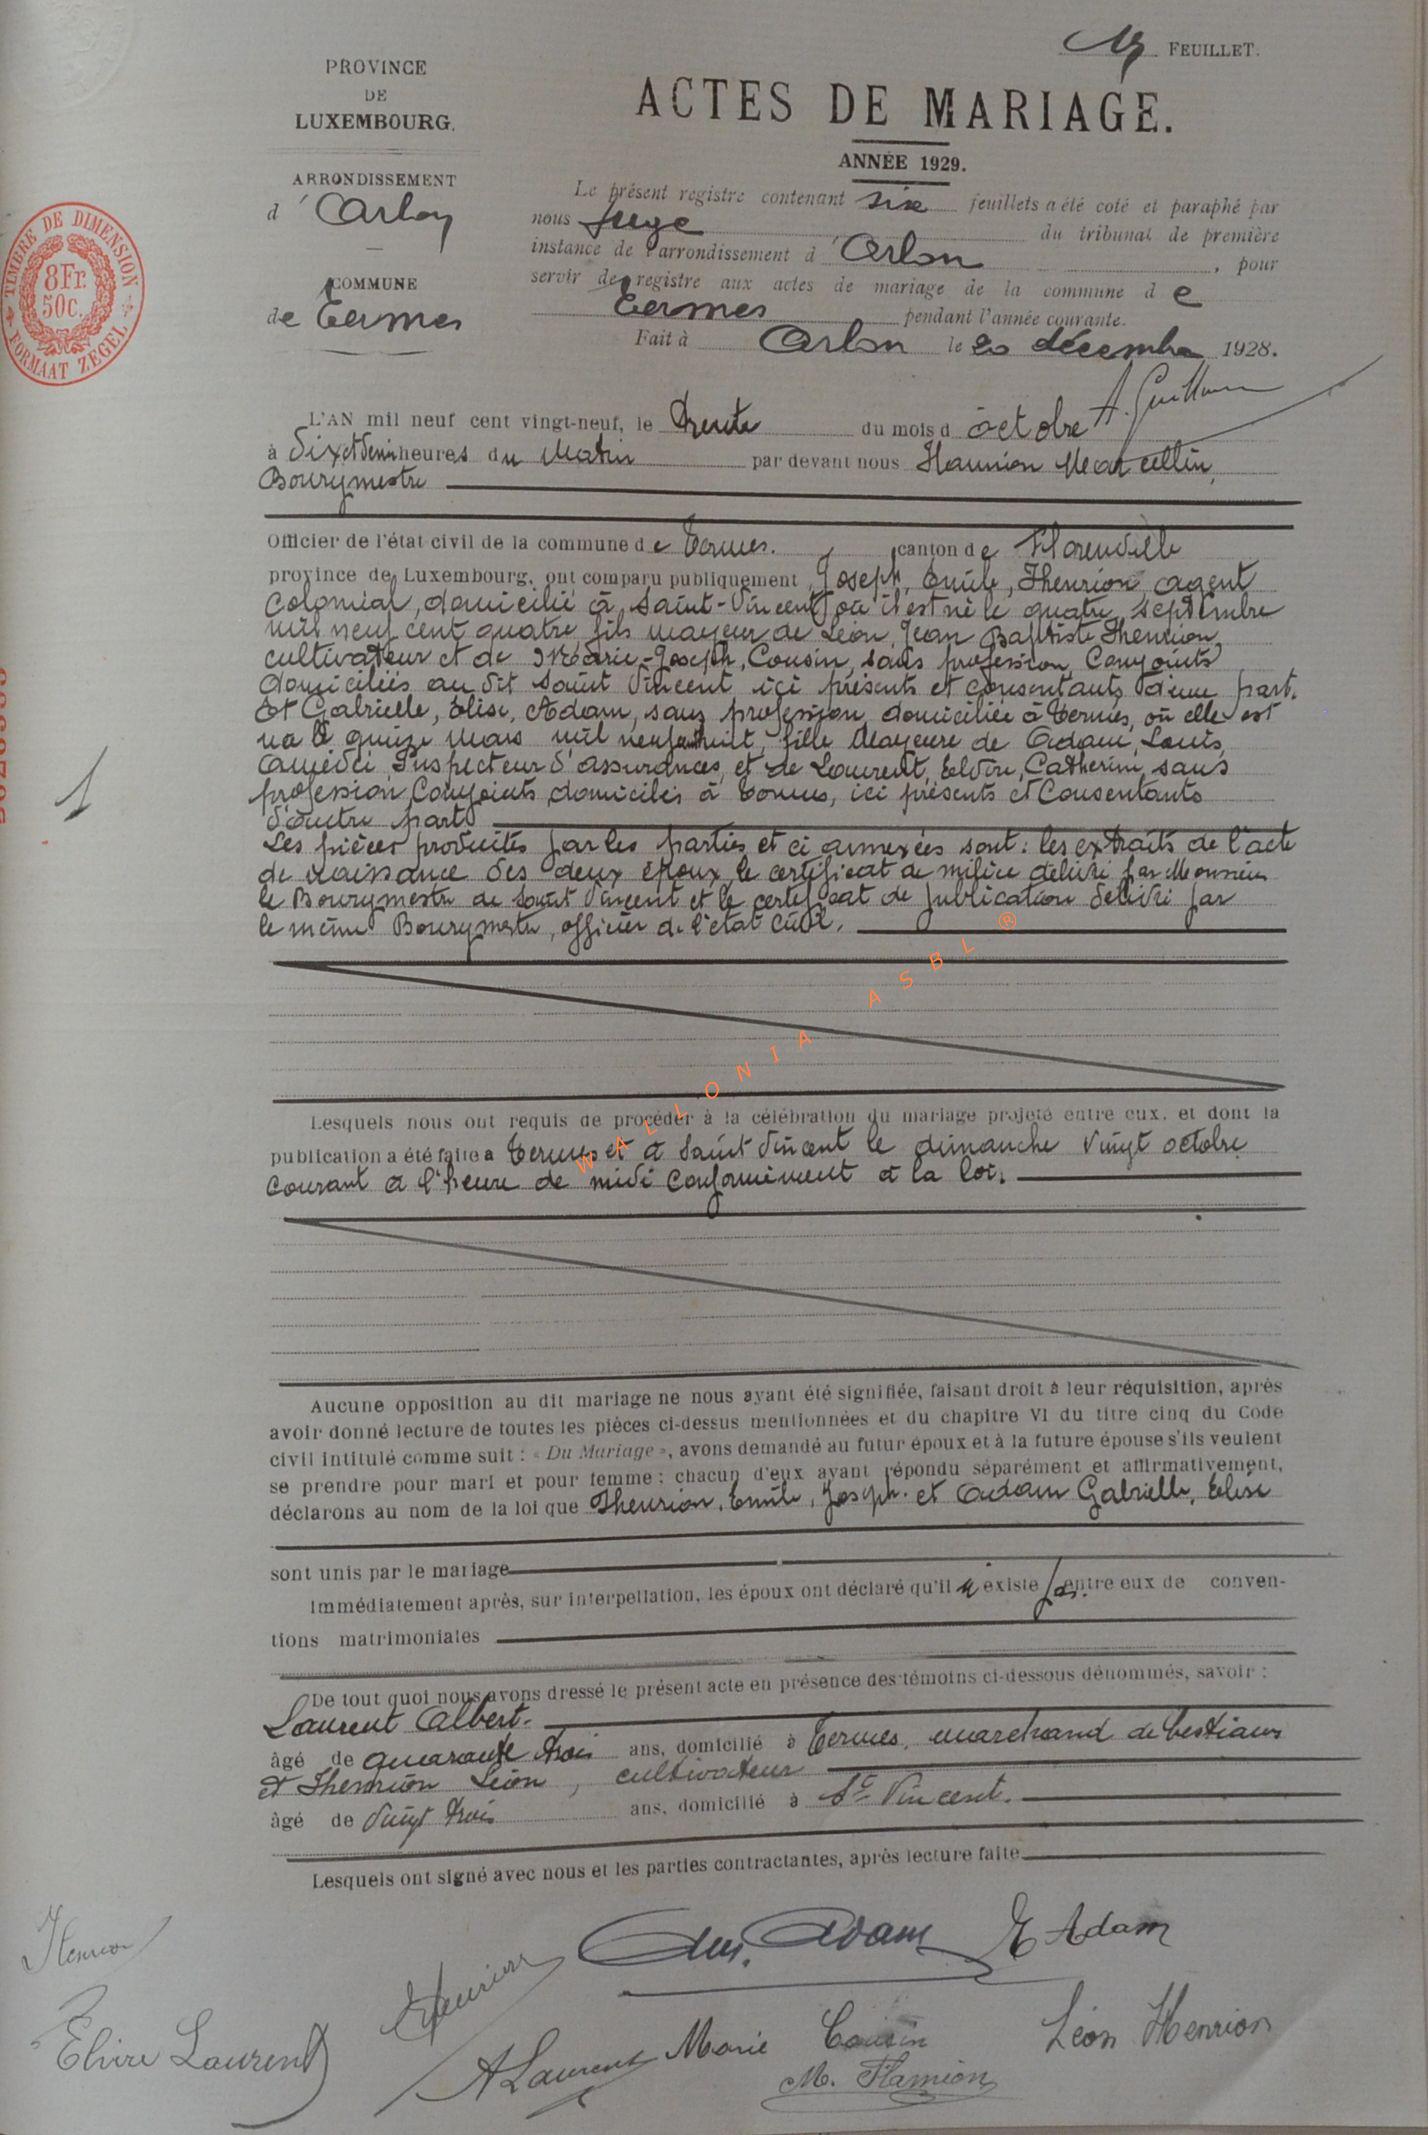 1er FEUILLET.
PROVINCE
DE
LUXEMBOURG.
ARRONDISSEMENT
d'Arlon
COMMUNE
de Termes
ACTES DE MARIAGE.
ANNÉE 1929.
Le présent registre contenant six feuillets a été coté et paraphé par
nous Juge du tribunal de première
instance de l'arrondissement d'Arlon, pour
servir de registre aux actes de mariage de la commune de
Termes pendant l'année courante.
Fait à Arlon le 20 décembre 1928.
TIMBRE DE DIMENSION
8Fr.
50c.
FORMAAT ZEGEL
L'AN mil neuf cent vingt-neuf, le trente du mois d'octobre
à dix et demi heures du Matin par devant nous Flamion Marcellin,
Bourgmestre
Officier de l'état civil de la commune de Termes. canton de Florenville
province de Luxembourg, ont comparu publiquement Joseph, Emile, Henrion agent
colonial, domicilié à Saint-Vincent où il est né le quatre septembre
mil neuf cent quatre fils majeur de Léon, Jean Baptiste Henrion
cultivateur et de Marie-Joseph, Cousin, sans profession Conjoints
domiciliés au dit Saint Vincent ici présents et consentants d'une part.
Et Gabrielle, Elise, Adam, sans profession domiciliée à Termes, où elle est
née le quinze Mars mil neuf cent huit, fille Majeure de Adam, Louis,
Amédée Inspecteur d'assurances, et de Laurent, Elvire, Catherine sans
profession Conjoints domiciliés à Termes, ici présents et Consentants
d'autre part
Les pièces produites par les parties et ci annexées sont : les extraits de l'acte
de naissance des deux époux, le certificat de milice délivré par Monsieur
le Bourgmestre de Saint Vincent et le certificat de publication délivré par
le même Bourgmestre, officier de l'état Civil.
WALLONIA ASBL ®
Lesquels nous ont requis de procéder à la célébration du mariage projeté entre eux, et dont la
publication a été faite à Termes et à Saint Vincent le dimanche vingt octobre
courant à l'heure de midi Conformément à la loi.
1
Aucune opposition au dit mariage ne nous ayant été signifiée, faisant droit à leur réquisition, après
avoir donné lecture de toutes les pièces ci-dessus mentionnées et du chapitre VI du titre cinq du Code
civil intitulé comme suit : « Du Mariage », avons demandé au futur époux et à la future épouse s'ils veulent
se prendre pour mari et pour femme ; chacun d'eux ayant répondu séparément et affirmativement,
déclarons au nom de la loi que Henrion, Emile, Joseph. et Adam Gabrielle, Elise
sont unis par le mariage
Immédiatement après, sur interpellation, les époux ont déclaré qu'il n'existe pas entre eux de conven-
tions matrimoniales
De tout quoi nous avons dressé le présent acte en présence des témoins ci-dessous dénommés, savoir :
Laurent Albert.
âgé de quarante trois ans, domicilié à Termes, marchand de bestiaux
et Henrion Léon, cultivateur
âgé de vingt trois ans, domicilié à St Vincent.
Lesquels ont signé avec nous et les parties contractantes, après lecture faite
Henrion
Henrion
Am. Adam
E Adam
Elvire Laurent
A Laurent
Marie Cousin
Léon Henrion
M. Flamion